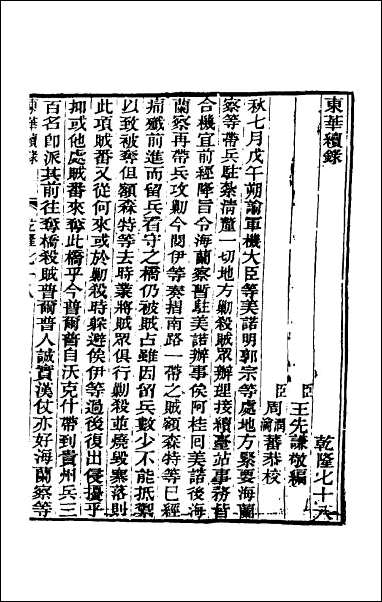 東華續錄
乾隆七十八
臣王先謙敬編
臣周潤蕃周瀹蕃恭校
秋七月戊午朔諭軍機大臣等美諾明郭宗等處地方緊要海蘭
察等帶兵駐紮清釐一切地方勦殺賊眾辦理接續臺站事務皆
合機宜前經降旨令海蘭察暫駐美諾辦事俟阿桂囘美諾後海
蘭察再帶兵攻勦今閱伊等奏摺南路一帶之賊額森特等已經
痛殲前進而留兵看守之橋仍被賊占雖因留兵數少不能抵禦
以致被奪但額森特等去時業將賊眾俱行勦殺並燒毀寨落則
此項賊番又從何來或於勦殺時躲避俟伊等過後復出侵擾乎
抑或他處賊番來奪此橋乎今普爾普自沃克什帶到貴州兵三
百名卽派其前往奪橋殺賊普爾普人誠實漢仗亦好海蘭察等
東華續錄
乾隆七十八